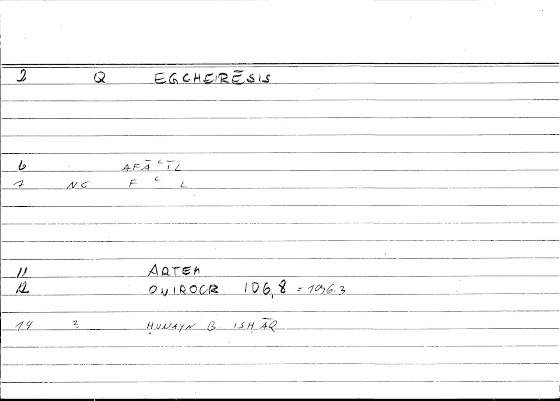 2 Q EGCHEIRĒSIS
6 AFĀʿĪL
7 NC F ʿ L
11 ARTEM
12 ONIROCR 106,8 = 1096.3
14 2 ḤUNAYN B. ISḤĀQ